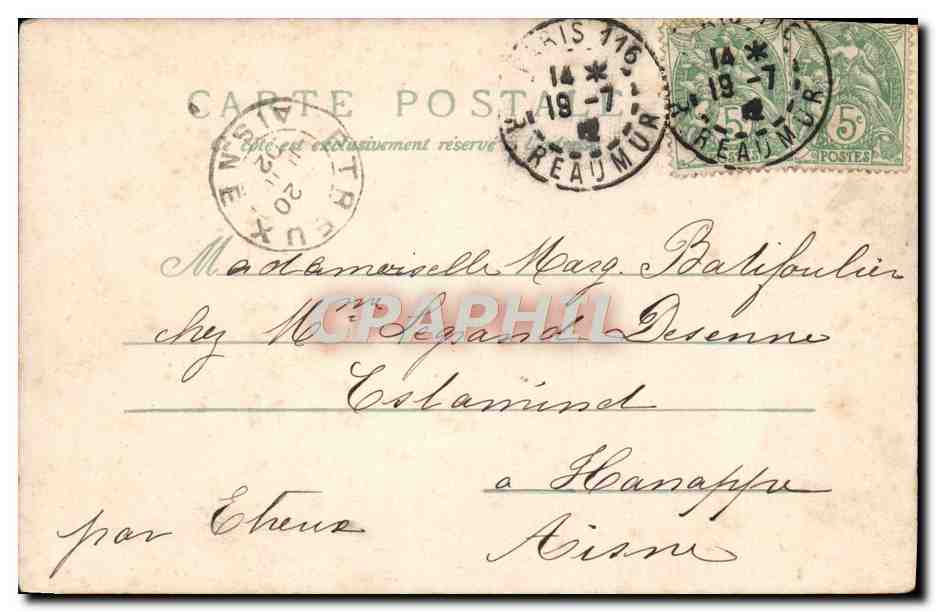 CARTE POSTALE
Ce côté est exclusivement réservé à l'adresse
PARIS 116
14 *
19 -7
02
R. REAUMUR
PARIS 116
14 *
19 -7
02
R. REAUMUR
5c
POSTES
5c
POSTES
ETREUX
AISNE
20
02
Mademoiselle Marg. Batifoulier
chez Mme Legrand Desenne
Estaminet
à Hanappe
par Etreux
Aisne
CPAPHIL